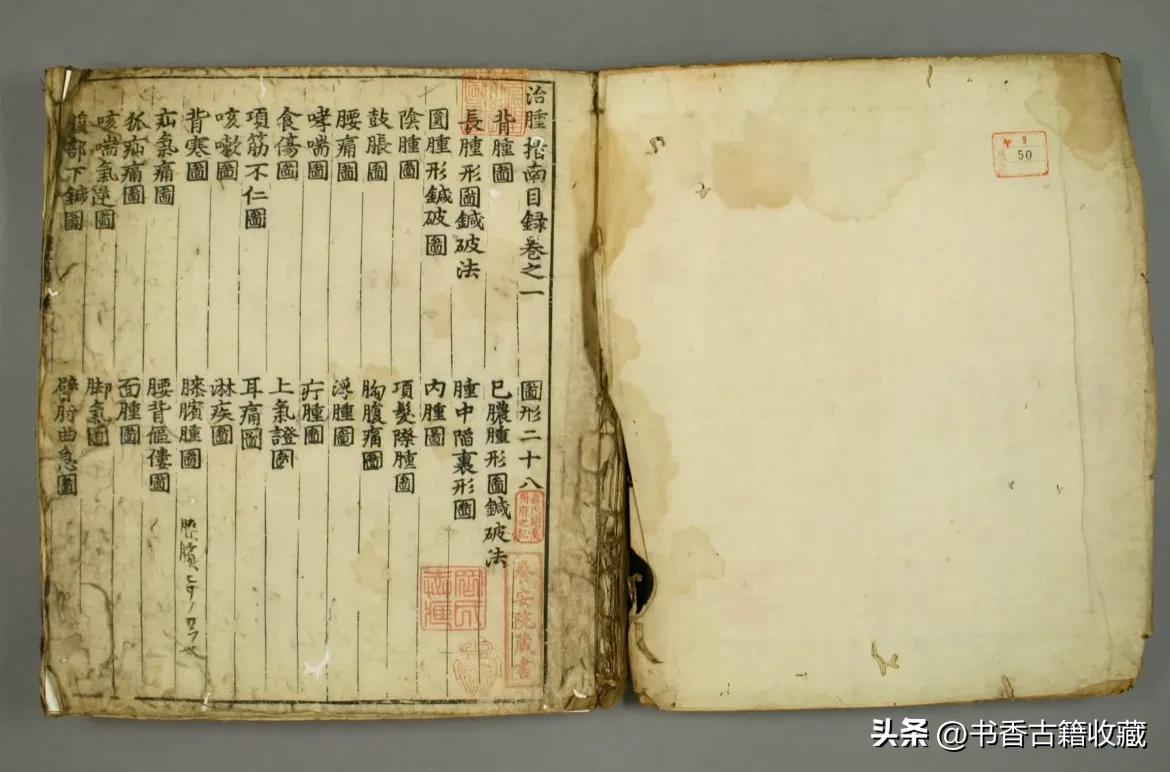 治腫指南目録卷之一 圖形二十八
背腫圖 已膿腫形圖鍼破法
長腫形圖鍼破法 腫中陷裏形圖
圓腫形鍼破圖 内腫圖
陰腫圖 項髮際腫圖
鼓脹圖 胸腹痛圖
腰痛圖 浮腫圖
哮喘圖 疔腫圖
食傷圖 上氣證圖
項筋不仁圖 耳痛圖
咳嗽圖 淋疾圖
背寒圖 膝臏腫圖
疝氣痛圖 腰背傴僂圖
狐疝痛圖 面腫圖
咳喘氣逆圖 脚氣圖
腹部下鍼圖 臂肘曲急圖
養安院藏書
50
头条 @书香古籍收藏